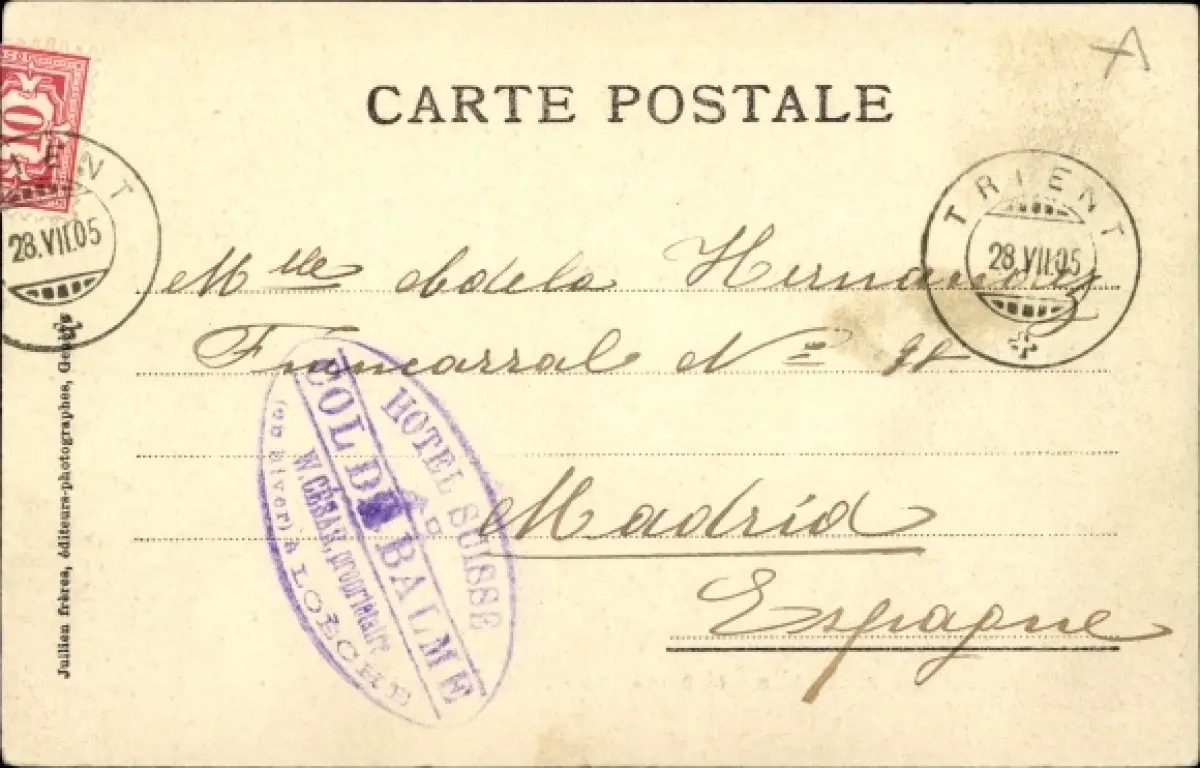 CARTE POSTALE
10
TRIENT
28.VII.05
TRIENT
28.VII.05
Mlle Adela Hernandez
Fuencarral Nº
Madrid
Espagne
HOTEL SUISSE
COL DE BALME
W. CÉSAR, propriétaire
(en hiver) à LOÈCHE
Jullien frères, éditeurs-photographes, Genève